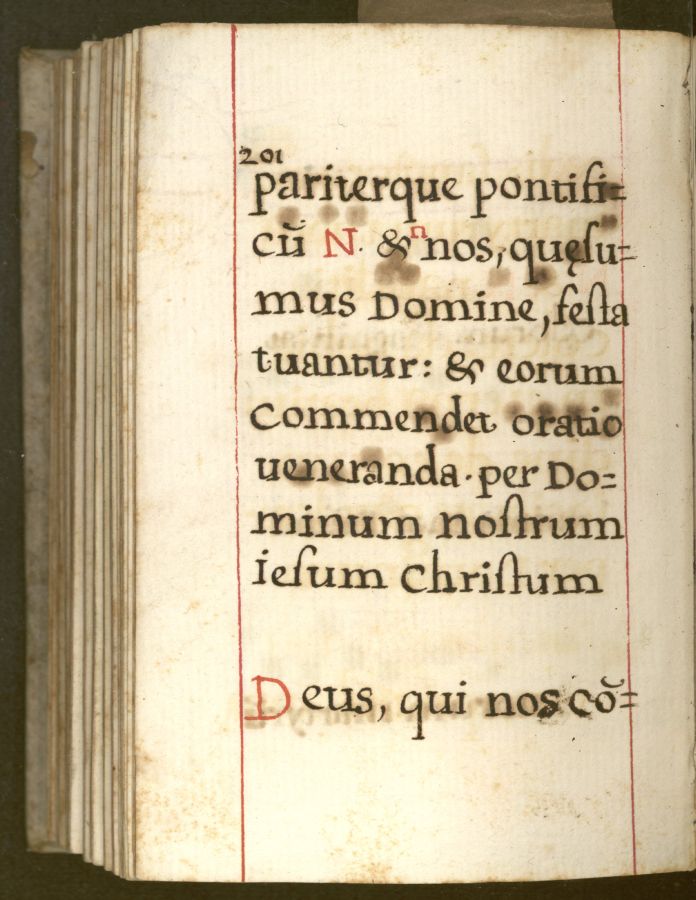 201
pariterque pontifi=
cū N. & n nos, quęſu=
mus Domine, feſta
tuantur: & eorum
Commendet oratio
ueneranda. per Do=
minum noſtrum
ieſum Chriſtum
Deus, qui nos cō=